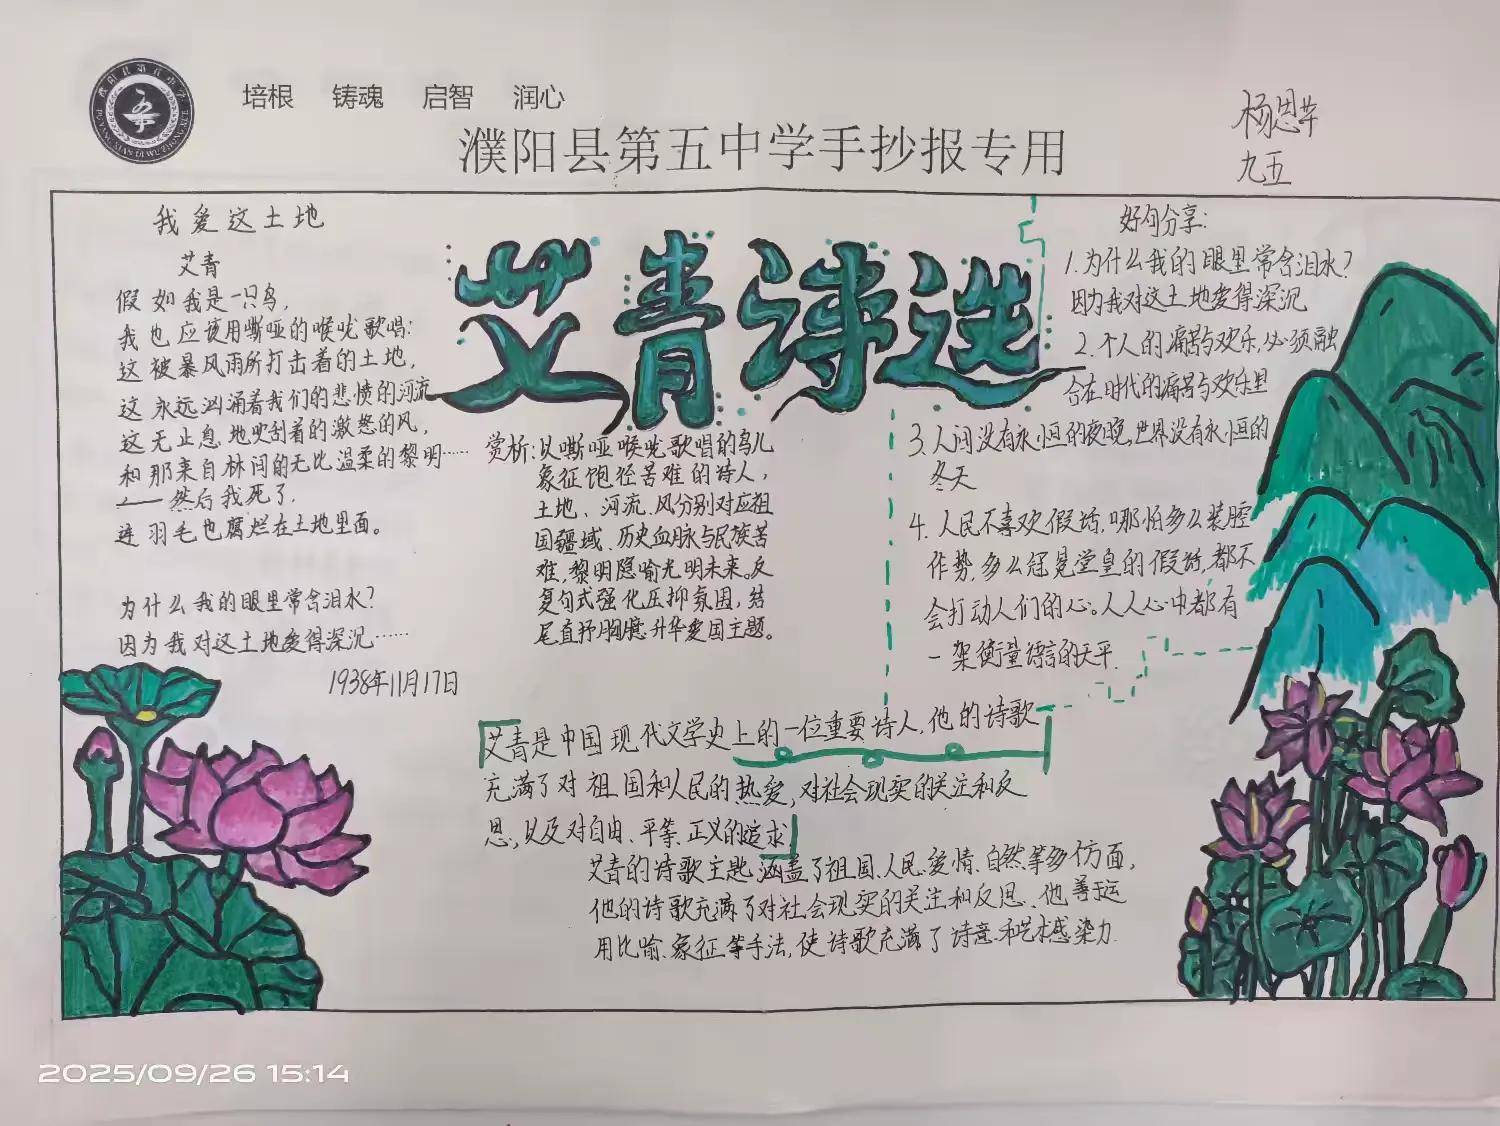 培根 铸魂 启智 润心
濮阳县第五中学手抄报专用
九五
艾青诗选
我爱这土地
艾青
假如我是一只鸟,
我也应该用嘶哑的喉咙歌唱:
这被暴风雨所打击着的土地,
这永远汹涌着我们的悲愤的河流
这无止息地吹刮着的激怒的风,
和那来自林间的无比温柔的黎明……
——然后我死了.
连羽毛也腐烂在土地里面。
为什么我的眼里常含泪水?
因为我对这土地爱得深沉……
1938年11月17日
赏析:以嘶哑喉咙歌唱的鸟儿
象征饱经苦难的诗人,
土地、河流、风分别对应祖
国疆域、历史血脉与民族苦
难,黎明隐喻光明未来。反
复句式强化压抑氛围,结
尾直抒胸臆升华爱国主题。
好句分享:
1.为什么我的眼里常含泪水?
因为我对这土地爱得深沉
2.个人的痛苦与欢乐,必须融
合在时代的痛苦与欢乐里
3.人间没有永恒的夜晚,世界没有永恒的
冬天
4.人民不喜欢假话,哪怕多么装腔
作势,多么冠冕堂皇的假话,都不
会打动人们的心。人人心中都有
一架衡量语言的天平.
艾青是中国现代文学史上的一位重要诗人,他的诗歌
充满了对祖国和人民的热爱,对社会现实的关注和反
思,以及对自由、平等、正义的追求
艾青的诗歌主题涵盖了祖国、人民、爱情、自然等多方面,
他的诗歌充满了对社会现实的关注和反思、他善于运
用比喻、象征等手法,使诗歌充满了诗意和艺术感染力.
2025/09/26 15:14